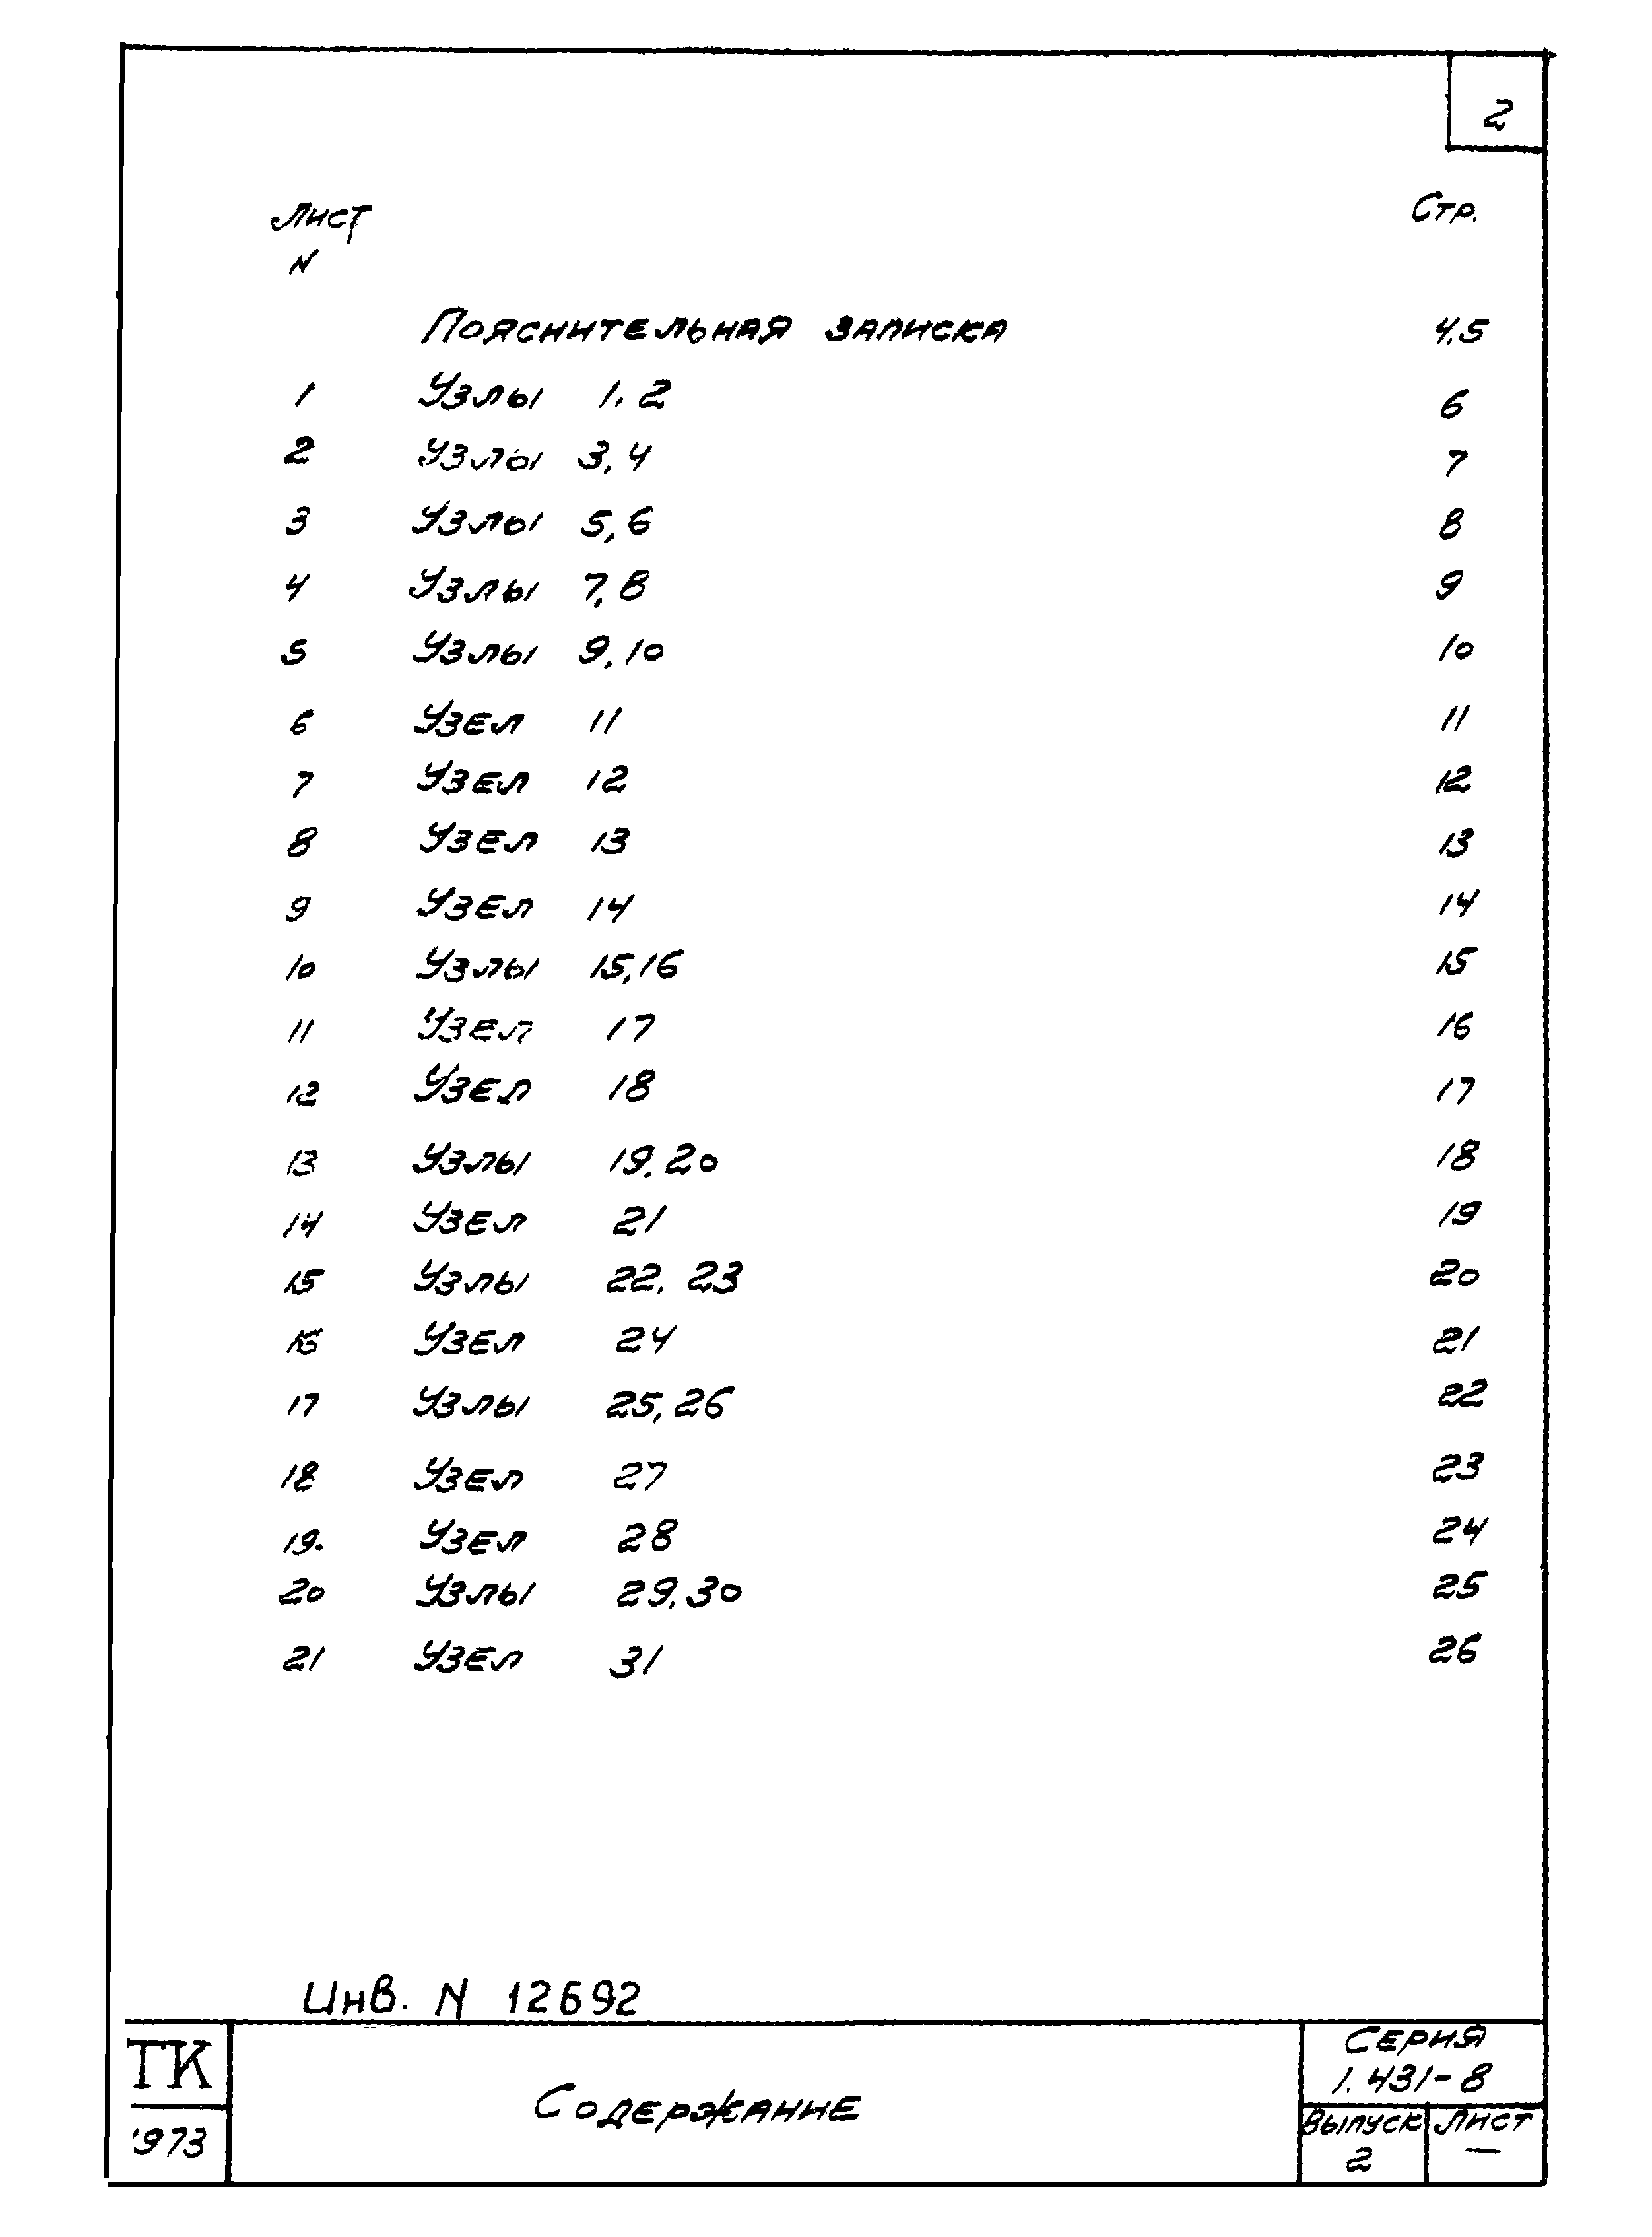 2
Лист Стр.
N
Пояснительная записка 4.5
1 Узлы 1.2 6
2 Узлы 3,4 7
3 Узлы 5,6 8
4 Узлы 7,8 9
5 Узлы 9,10 10
6 Узел 11 11
7 Узел 12 12
8 Узел 13 13
9 Узел 14 14
10 Узлы 15,16 15
11 Узел 17 16
12 Узел 18 17
13 Узлы 19.20 18
14 Узел 21 19
15 Узлы 22. 23 20
16 Узел 24 21
17 Узлы 25,26 22
18 Узел 27 23
19. Узел 28 24
20 Узлы 29.30 25
21 Узел 31 26
Инв. N 12692
ТК
1973
Содержание
Серия
1.431-8
Выпуск Лист
2 —